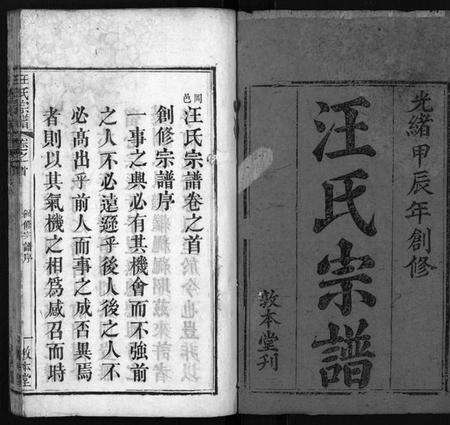 光緒甲辰年創修
汪氏宗譜
敦本堂刊
岡邑
汪氏宗譜卷之首
創修宗譜序
一事之興必有其機會而不強前
之人不必遠遜乎後人後之人不
必高出乎前人而事之成否異焉
者則以其氣機之相為感召而時
汪氏宗譜
卷之首
創修宗譜序
一
敦本堂